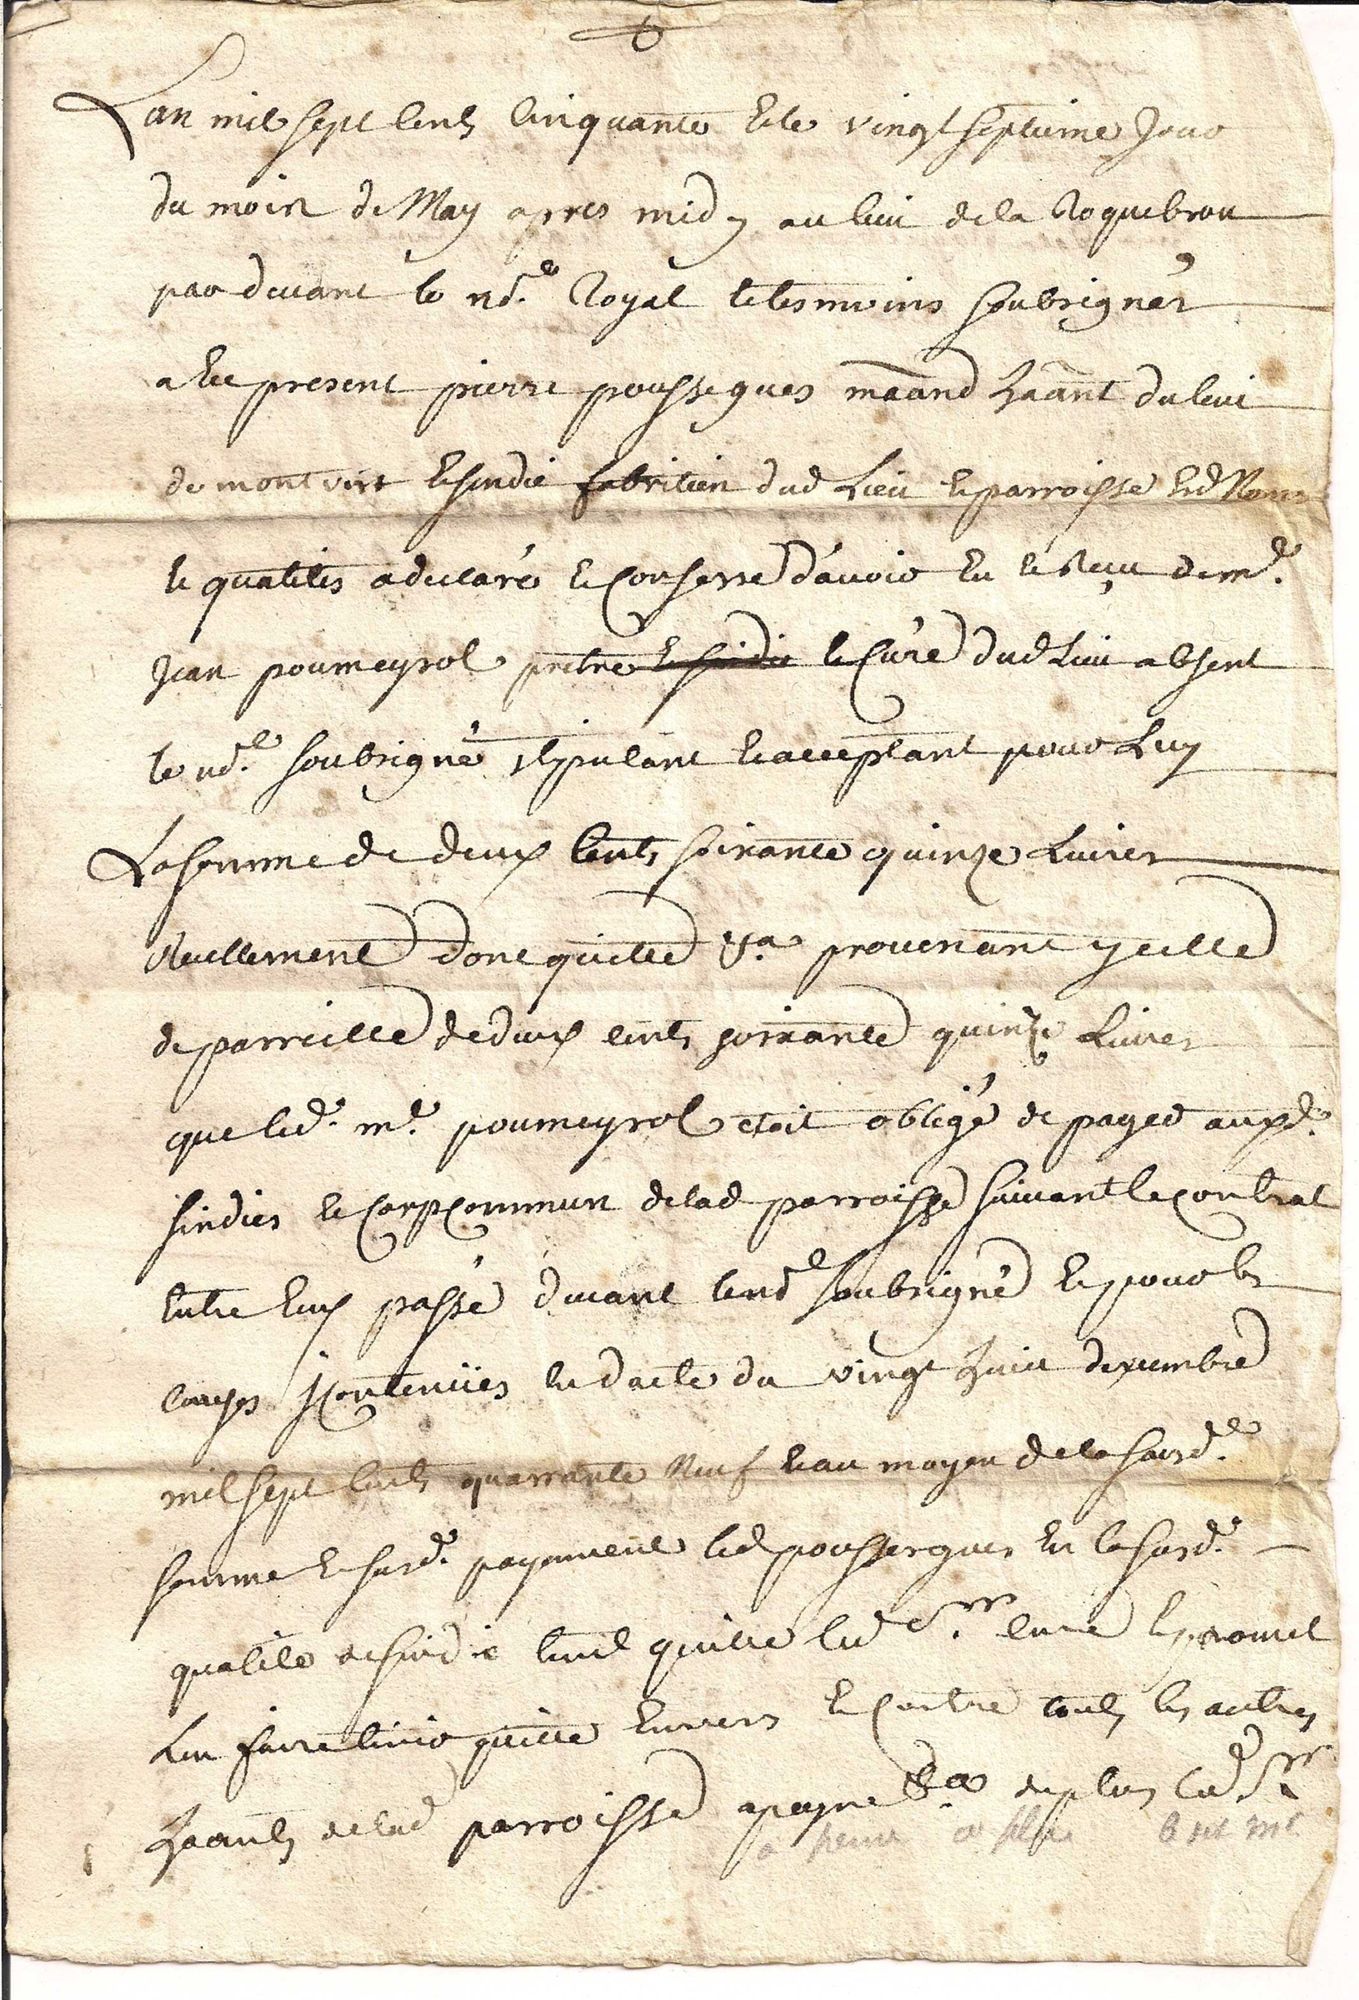 Lan mil sept cents cinquante & le vingt septieme jour
du mois de May apres midy au lieu de la Roquebrou
par devant le nore. Royal & tesmoins soubsignés
a été present pierre poussergues maand haant du lieu
de montvert & sindic fabricien dud Lieu & parroisse & d Nom
& qualités a declaré & confessé d'avoir eu & reçu de mre.
jean poumeyrol pretre & curé dud Lieu absent
le nore. soubsigné stipulant & acceptant pour Luy
La somme de deux cents soixante quinze Livres
reellement dont quitte &a provenant ycelle
de parreille de deux cents soixante quinze Livres
que led. mre. poumeyrol etoit obligé de payer auxd.
sindics & corps commun de lad parroisse suivant le contrat
entre eux passé devant le nore soubsigné & pour les
causes y contenües en datte du vingt huit dexembre
mil sept cents quarrante Neuf & au moyen de la susde.
somme & susd. payement led poussergues en la susd.
qualité de sindic tient quitte led Sr. curé & promet
Len faire tenir quitte envers & contre touts les autres
haants de lad parroisse a peyne &a de plus led Sr
a peine de plus